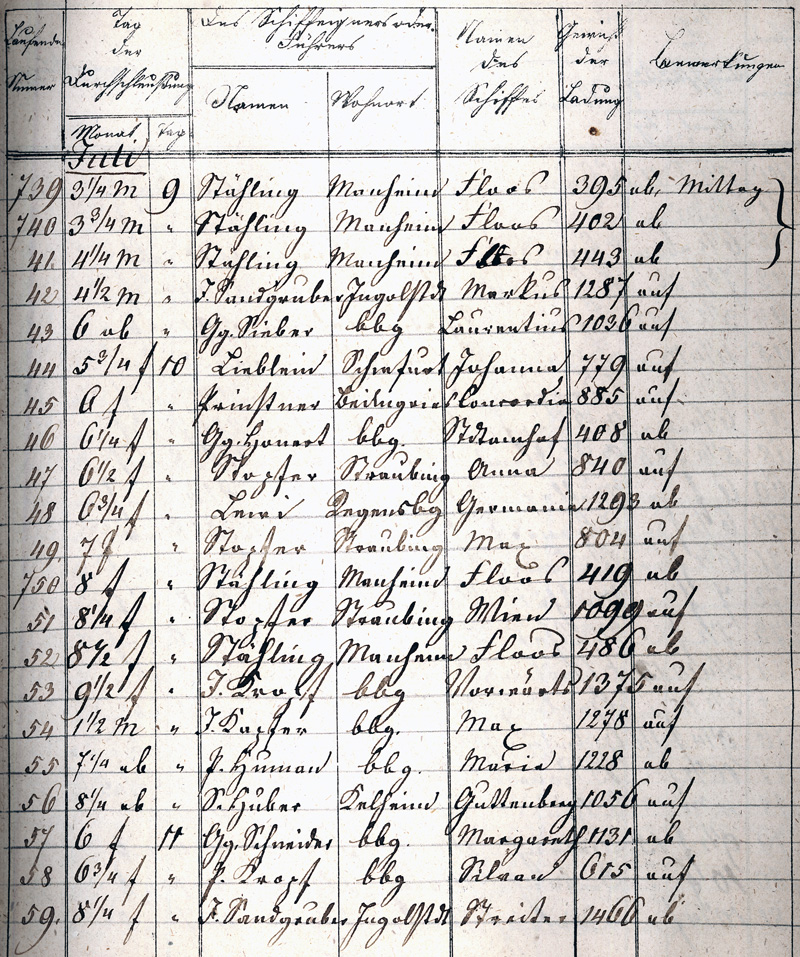 Laufende Numer | Tag der Durchschleußung | Des Schiffeigners oder Führers | Namen des Schiffes | Gewicht der Ladung | Bemerkungen
Monat | Tag | Namen | Wohnort
Juli
739 3 1/4 M 9 Stähling Manheim Floos 395 ab, Mittag
740 3 3/4 M " Stähling Manheim Floos 402 ab
41 4 1/4 M " Stähling Manheim Floos 443 ab
42 4 1/2 M " J. Sandgruber Ingolstdt Markus 1287 auf
43 6 ab " Gg. Sieber bbg Laurentius 1036 auf
44 5 3/4 f 10 Lieblein Schwfurt Johanna 779 auf
45 6 f " Prinstner Beilngries Concordia 885 auf
46 6 1/4 f " Gg. bbg. Stdtamhof 408 ab
47 6 1/2 f " Stopfer Straubing Anna 840 auf
48 6 3/4 f " Regensbg Germania 1293 ab
49. 7 f " Stopfer Straubing Max 804 auf
750 8 f " Stähling Manheim Floos 419 ab
51 8 1/4 f " Stopfer Straubing Wien 1099 auf
52 8 1/2 f " Stähling Manheim Floos 486 ab
53 9 1/2 f " J. Kropf bbg Vorwärts 1375 auf
54 1 1/2 M " J. Kapfer bbg. Max 1278 auf
55 7 1/4 ab " P. Human bbg. Maria 1228 ab
56 8 1/4 ab " S. Huber Kelheim Guttenberg 1056 auf
57 6 f 11 Gg. Schneider bbg. Margareth 1131 ab
58 6 3/4 f " P. Kropf bbg Silvan 615 auf
59. 8 1/4 f " J. Sandgruber Ingolstdt Streiter 1466 ab